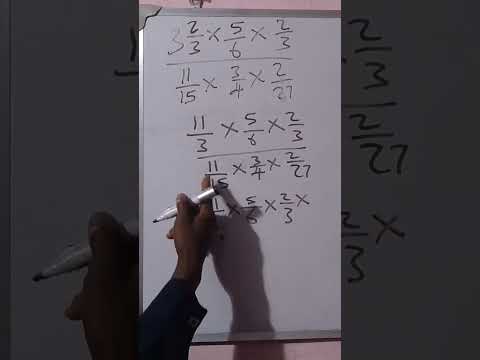 3 2/3 × 5/6 × 2/3
11/15 × 3/4 × 2/27
11/3 × 5/6 × 2/3
11/15 × 3/4 × 2/27
× 5/6 × 2/3 ×